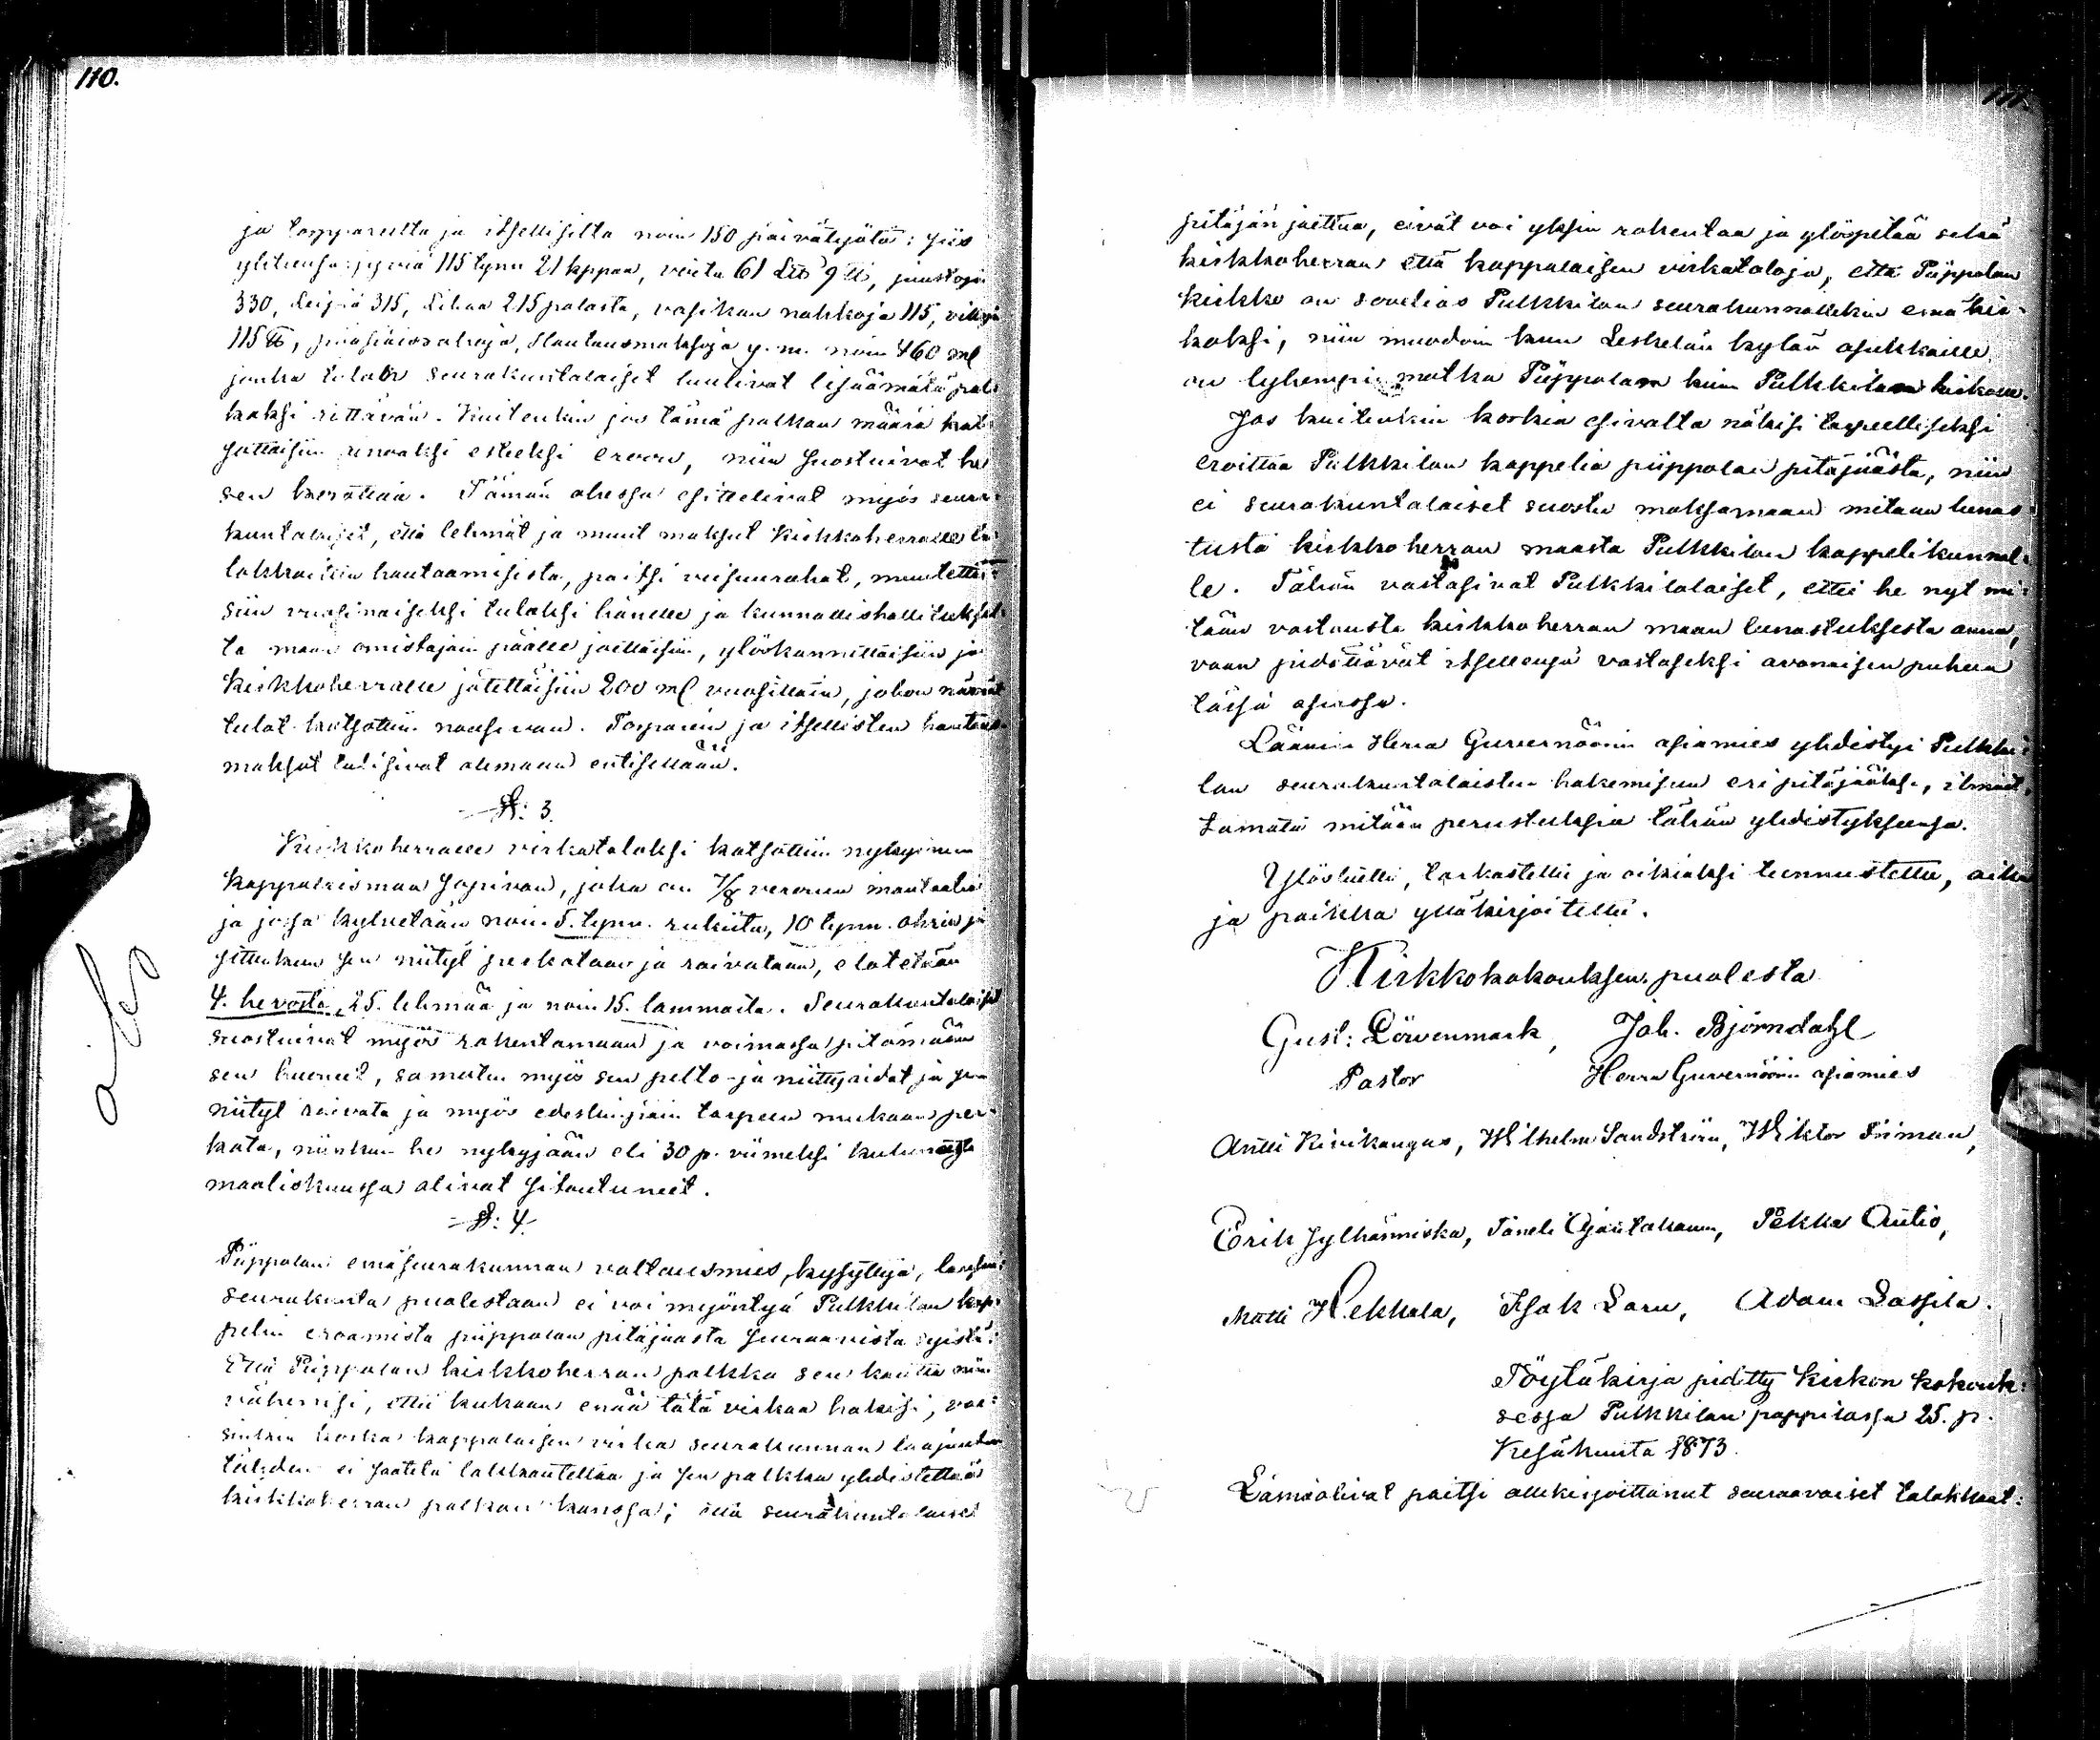 110.
ja torppareilta ja itsellisiltä noin 150 päivätyötä: siis
yhteensä jyviä 115 tynn 21 kppaa, voita 61 L℔ 9 ℔, juustoja
330, Leipiä 315, Lihaa 215 palasta, vasikan nahkoja 115, villoja
115 ℔, pääsiäisrahoja, Hautausmaksoja y. m. noin 460 mk
jonka tulon seurakuntalaiset luulivat lisäämätä pal-
kaksi riittävän. Kuitenkin jos tämä palkan määrä kat-
sottaisiin ainoaksi esteeksi eroon, niin suostuivat he
sen
kuntalaiset, että lehmät ja muut maksut Kirkkoherralle ta-
lokkaitten hautaamisista, paitsi ruisuurahat, muutettai-
siin vuosinaiseksi tuloksi hänelle ja kunnallishallitukselta
ta maan omistajain päälle jaettaisiin, ylöskannettaisiin ja
Kirkkoherralle jätettäisiin 200 mk vuosittain, johon nämät
tulot katsottiin nousevan. Torpparein ja itsellisten hautaus-
maksut tulisivat olemaan entisellään.
§: 3.
Kirkkoherralle virkataloksi katsottiin nykyinen
Kappalaisman sopivan, joka on 7/8 veroinen mantaalia
ja josa kylvetään noin 5. tynn. rukiita, 10 tynn. ohria ja
sittenkun sen niityt perkataan ja raivataan, elatetaan
4. hevosta, 25. lehmää ja noin 15. lammasta. Seurakuntalaiset
suostuivat myös rakentamaan ja voimassa pitämään
sen huoneet, samoten myös sen pelto- ja niittyaidat ja sen
niityt raivata ja myös edeskinpäin tarpeen mukaan per-
kata, niinkuin he nykyjään eli 30 p. viimeksi kulunutta
maaliskuussa olivat sitoutuneet.
§: 4.
Piippolan emäseurakunnan valtausmies, kysyttyä, lausui:
seurakunta puolestaan ei voi myöntyä Pulkkilan kap-
pelin eroamista piippolan pitäjäästä seuraavista syistä:
Että Piippolan kirkkoherran palkka sen kautta niin
vähenisi, ettei kukaan enää tätä virkaa hakisi, var-
sinkin koska kappalaisen virka seurakunnan laajuuden
tähden ei saateta lakkautettaa ja sen palkka yhdistettää
kirkkoherran palkan kanssa; että seurakuntalaiset
111.
pitäjän jaettua, eivät voi yksin rakentaa ja ylöspitää sekä
kirkkoherran että kappalaisen virkataloja, että Piippolan
kirkko on sovelias Pulkkilan seurakunnallekin emäkir-
koksi, niin muodoin kuin Leskelän kylän asukkaille
on lyhempi matka Piippolan kuin Pulkkilan kirkolle.
Jos kuitenkin korkia esivalta näkisi tarpeelliseksi
eroittaa Pulkkilan kappelia piippolan pitäjäästä, niin
ei seurakuntalaiset suostu maksamaan mitään lunas-
tusta kirkkoherran maasta Pulkkilan kappelikunnal-
le. Tähän vastasivat Pulkkilalaiset, ettei he nyt mi-
tään vastausta kirkkoherran maan lunastuksesta anna,
vaan pidättävät itsellensä vastaseksi avonaisen puheen
tässä asiassa.
Läänin Herra Guvernöörin asiamies yhdistyi Pulkki-
lan seurakuntalaisten hakemiseen eri pitäjääksi, ilmoit-
tamata mitään perustuksia tähän yhdistykseensä.
Ylösluettu, tarkastettu ja oikiaksi tunnustettu, aika
ja paikka ylläkirjoitettu.
Kirkkokokouksen puolesta
Gust: Löwenmark, Joh. Björndahl
Pastor Herra Guvernöörin asiamies
Antti Kivikangas, Wilhelm Sandström, Wiktor Siiman,
Erik Jylhänniska, Taneli Ojantakanen, Pekka Autio,
Matti Wekkala, Isak Laru, Adam Lassila.
Pöytäkirja pidetty Kirkon kokouk-
sessa Pulkkilan pappilassa 25. p.
Kesäkuuta 1873.
Läsnäolivat paitsi allekirjoittanut seuraavaiset talokkaat: